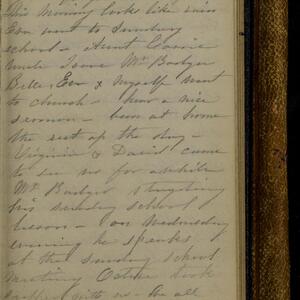 This morning looks like rain
Eva went to Sunday
school - Aunt Carrie
Uncle Isaac Mr Badger
Belle, Eva & myself went
to church - hear a nice
sermon - been at home
the rest of the day -
Virginia & David came
to see us for a while
Mr Badger studying
his sunday school
lesson - on Wednesday
evening he speaks
at the Sunday School
meeting
took
with us - we all